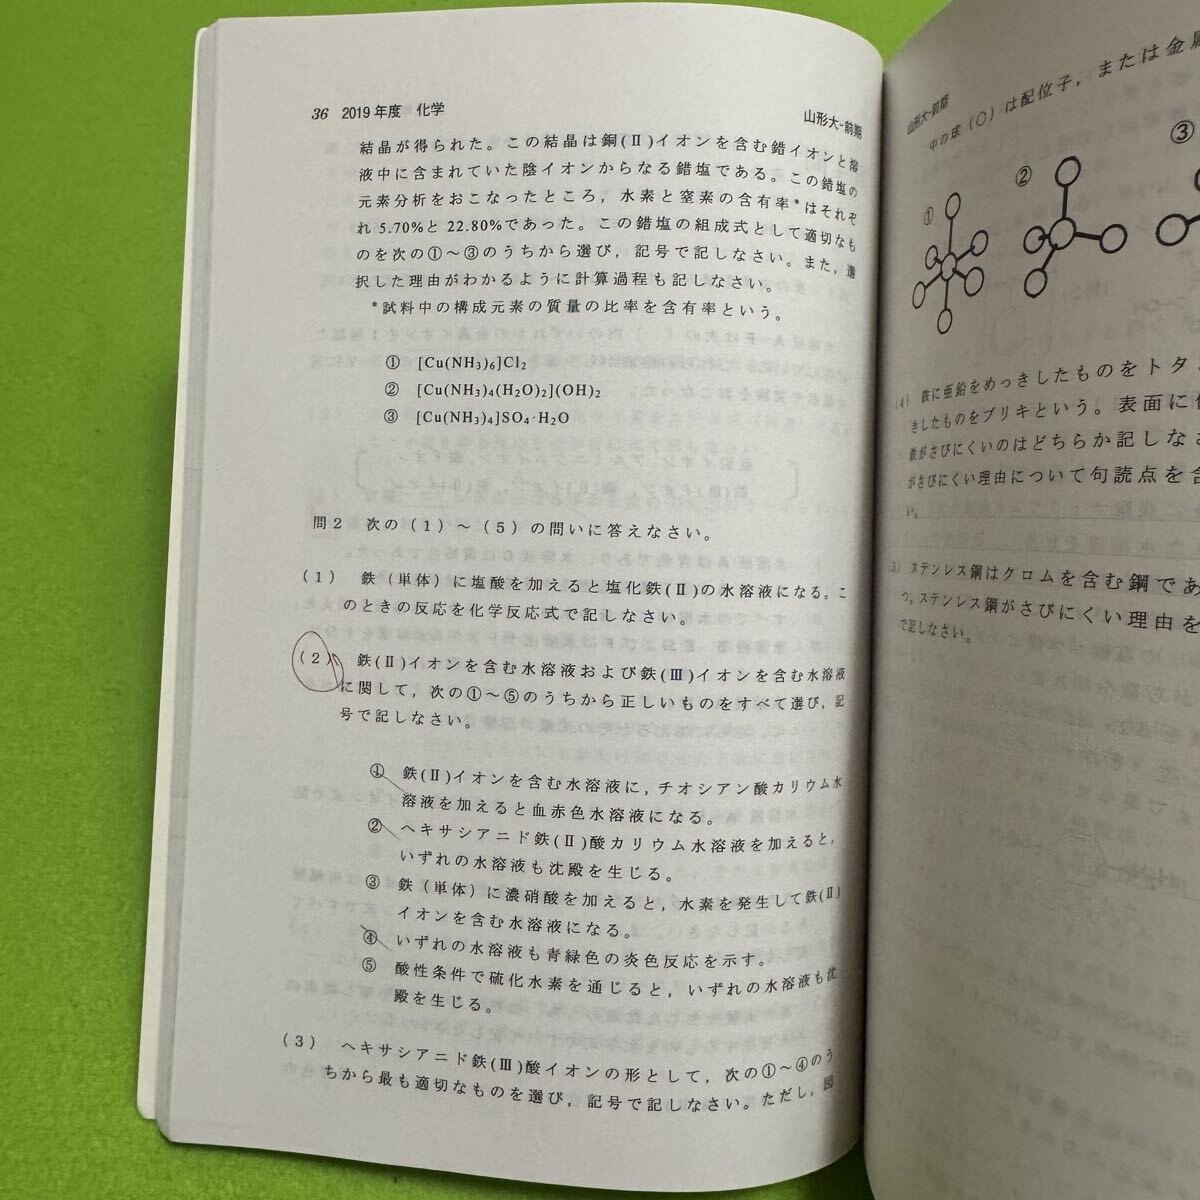 36 2019年度 化学
山形大-前期
結晶が得られた。この結晶は銅(Ⅱ)イオンを含む錯イオンと溶
液中に含まれていた陰イオンからなる錯塩である。この錯塩の
元素分析をおこなったところ，水素と窒素の含有率*はそれぞ
れ5.70%と22.80%であった。この錯塩の組成式として適切なも
のを次の①～③のうちから選び，記号で記しなさい。また，選
択した理由がわかるように計算過程も記しなさい。
*試料中の構成元素の質量の比率を含有率という。
① [Cu(NH3)6]Cl2
② [Cu(NH3)4(H2O)2](OH)2
③ [Cu(NH3)4]SO4·H2O
問2 次の(1)～(5)の問いに答えなさい。
(1) 鉄(単体)に塩酸を加えると塩化鉄(Ⅱ)の水溶液になる。こ
のときの反応を化学反応式で記しなさい。
(2) 鉄(Ⅱ)イオンを含む水溶液および鉄(Ⅲ)イオンを含む水溶液
に関して，次の①～⑤のうちから正しいものをすべて選び，記
号で記しなさい。
① 鉄(Ⅱ)イオンを含む水溶液に，チオシアン酸カリウム水
溶液を加えると血赤色水溶液になる。
② ヘキサシアニド鉄(Ⅱ)酸カリウム水溶液を加えると，
いずれの水溶液も沈殿を生じる。
③ 鉄(単体)に濃硝酸を加えると，水素を発生して鉄(Ⅱ)
イオンを含む水溶液になる。
④ いずれの水溶液も青緑色の炎色反応を示す。
⑤ 酸性条件で硫化水素を通じると，いずれの水溶液も沈
殿を生じる。
(3) ヘキサシアニド鉄(Ⅲ)酸イオンの形として，次の①～④のう
ちから最も適切なものを選び，記号で記しなさい。ただし，図
山形大-前期
中の球(○)は配位子，または金属
① ② ③
(4) 鉄に亜鉛をめっきしたものをトタ
きしたものをブリキという。表面に
鉄がさびにくいのはどちらか記しなさ
がさびにくい理由について句読点を含
い。
ステンレス鋼はクロムを含む鋼であ
つ。ステンレス鋼がさびにくい理由を
で記しなさい。